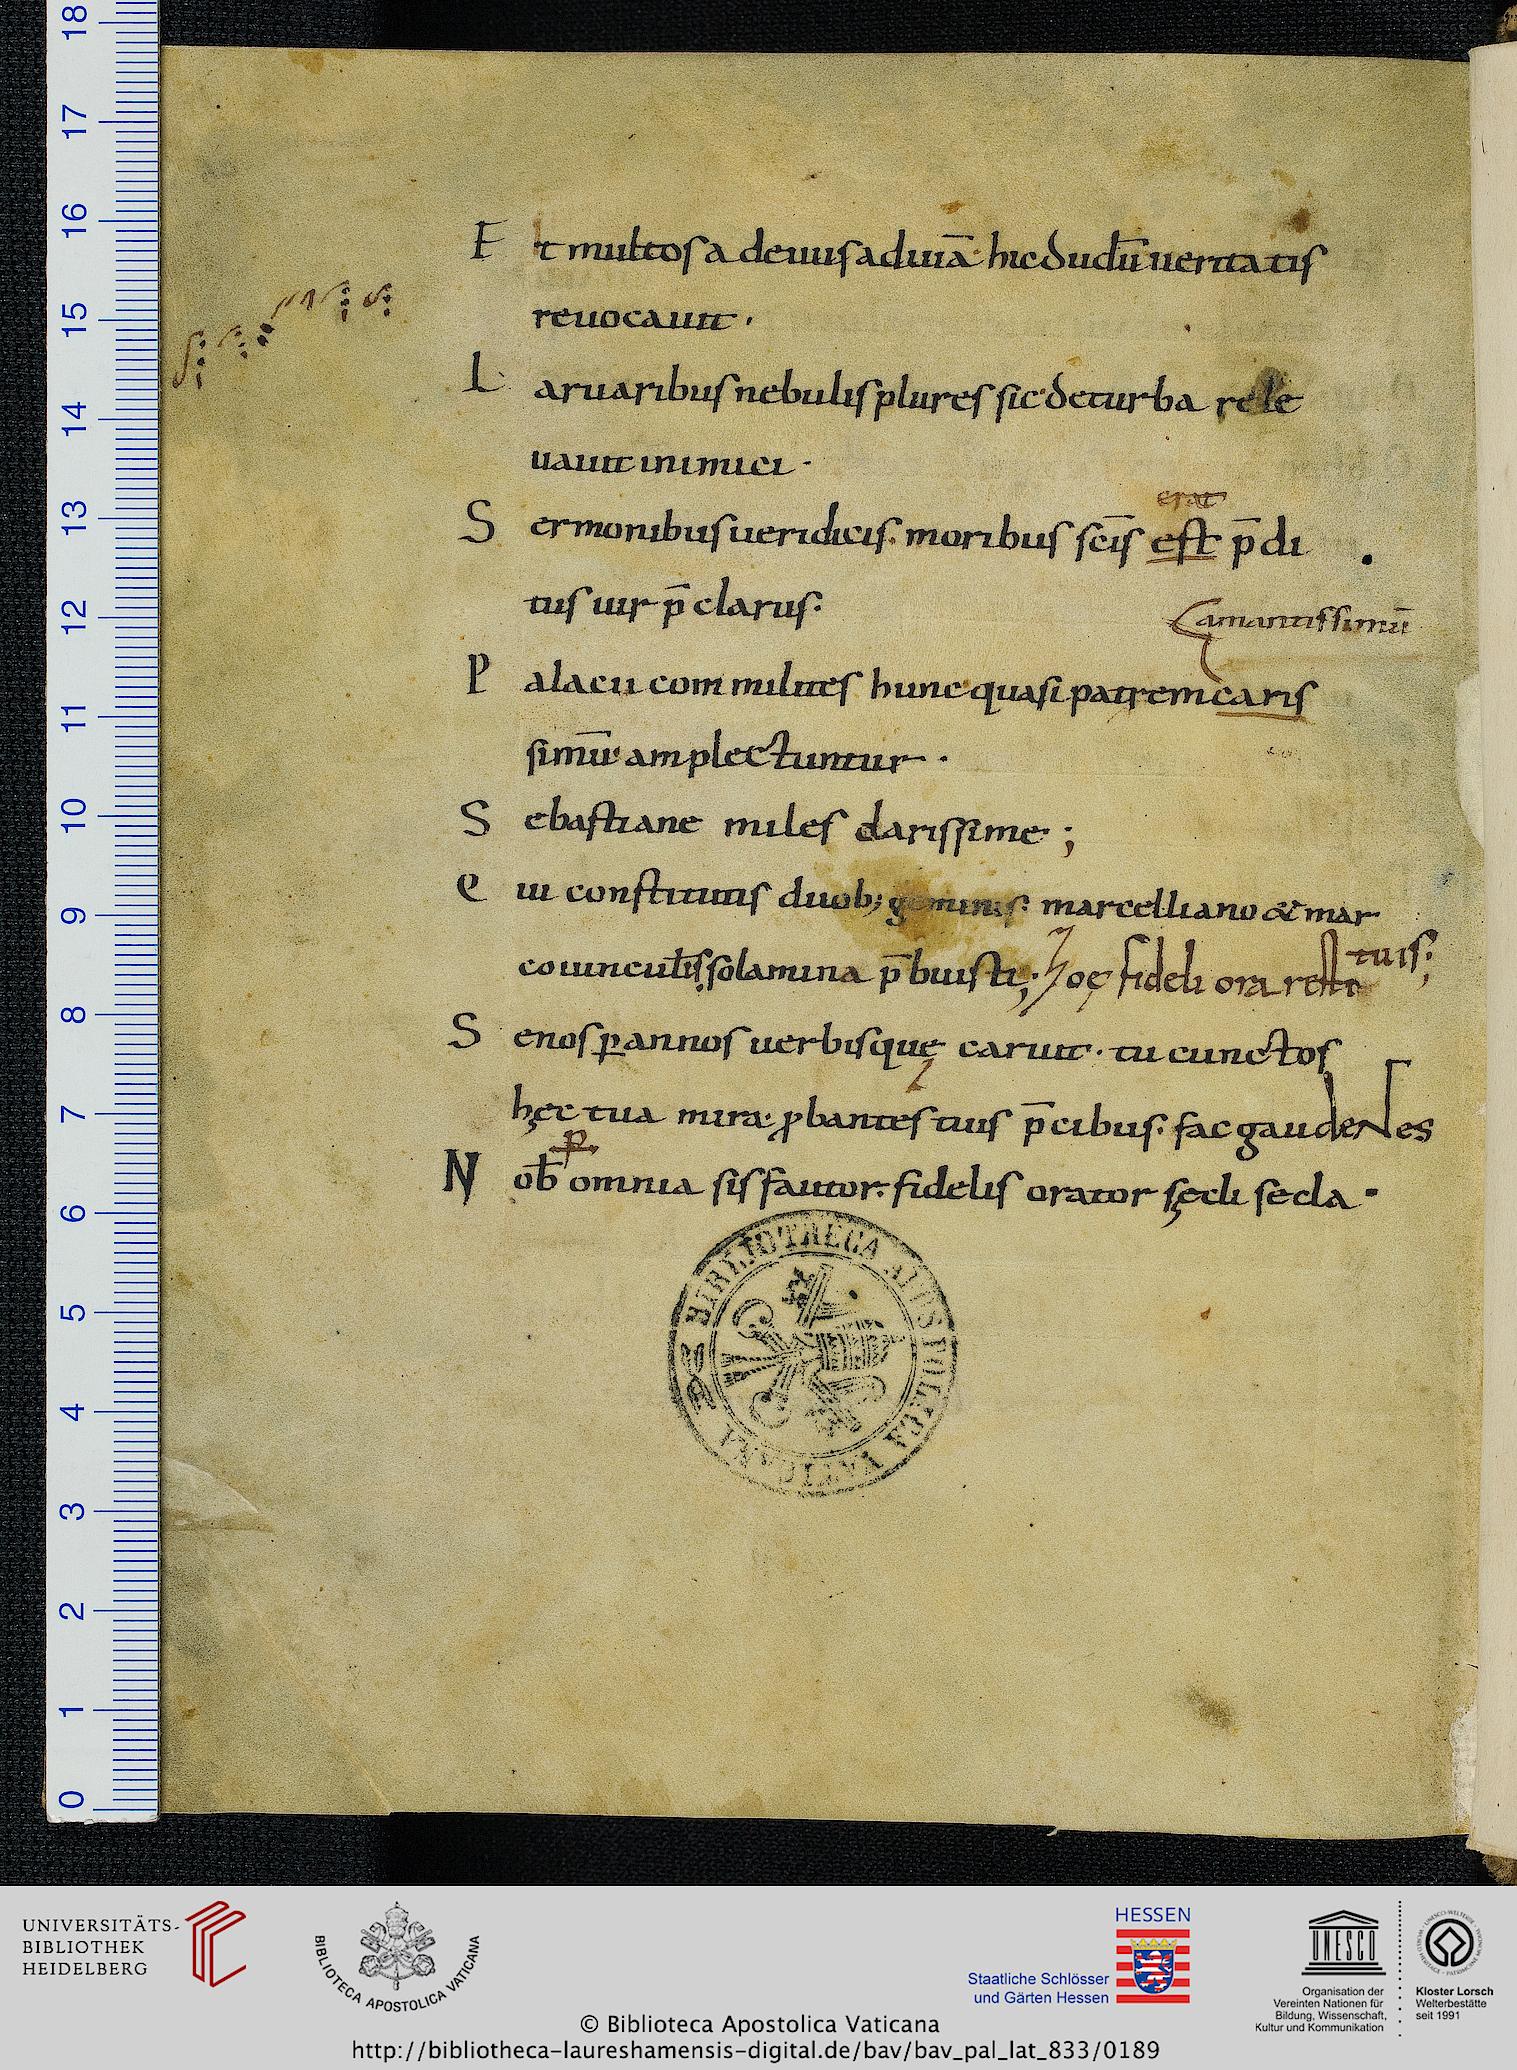 18
17
16
15
14
13
12
11
10
9
8
7
6
5
4
3
2
1
0
Et multos a deuiis ad uiā hic dudū ueritatis
reuocauit.
Laruaribus nebulis plures sic de turba rele
uauit inimici.
erat
Sermonibus ueridicis. moribus sc̄is est p̄di
tus uir p̄clarus:
amantissimū
Palacii commilites hunc quasi patrem caris
simū amplectuntur.
Sebastiane miles clarissime;
Cui constitutis duob; geminis: marcelliano & mar
co uinculis solamina p̄buisti; hoc fideli ora
tuis;
Senos ꝑ annos uerbisque caruit. tu cunctos
hęc tua mira ꝓbantes tuis p̄cibus: fac gaudentes
ꝑ
Nob̄ omnia sis fautor. fidelis orator sęcli secla.
BIBLIOTHECA APOSTOLICA VATICANA
UNIVERSITÄTS-
BIBLIOTHEK
HEIDELBERG
BIBLIOTECA APOSTOLICA VATICANA
HESSEN
Staatliche Schlösser
und Gärten Hessen
UNESCO
Organisation der
Vereinten Nationen für
Bildung, Wissenschaft,
Kultur und Kommunikation
Kloster Lorsch
Welterbestätte
seit 1991
© Biblioteca Apostolica Vaticana
http://bibliotheca-laureshamensis-digital.de/bav/bav_pal_lat_833/0189